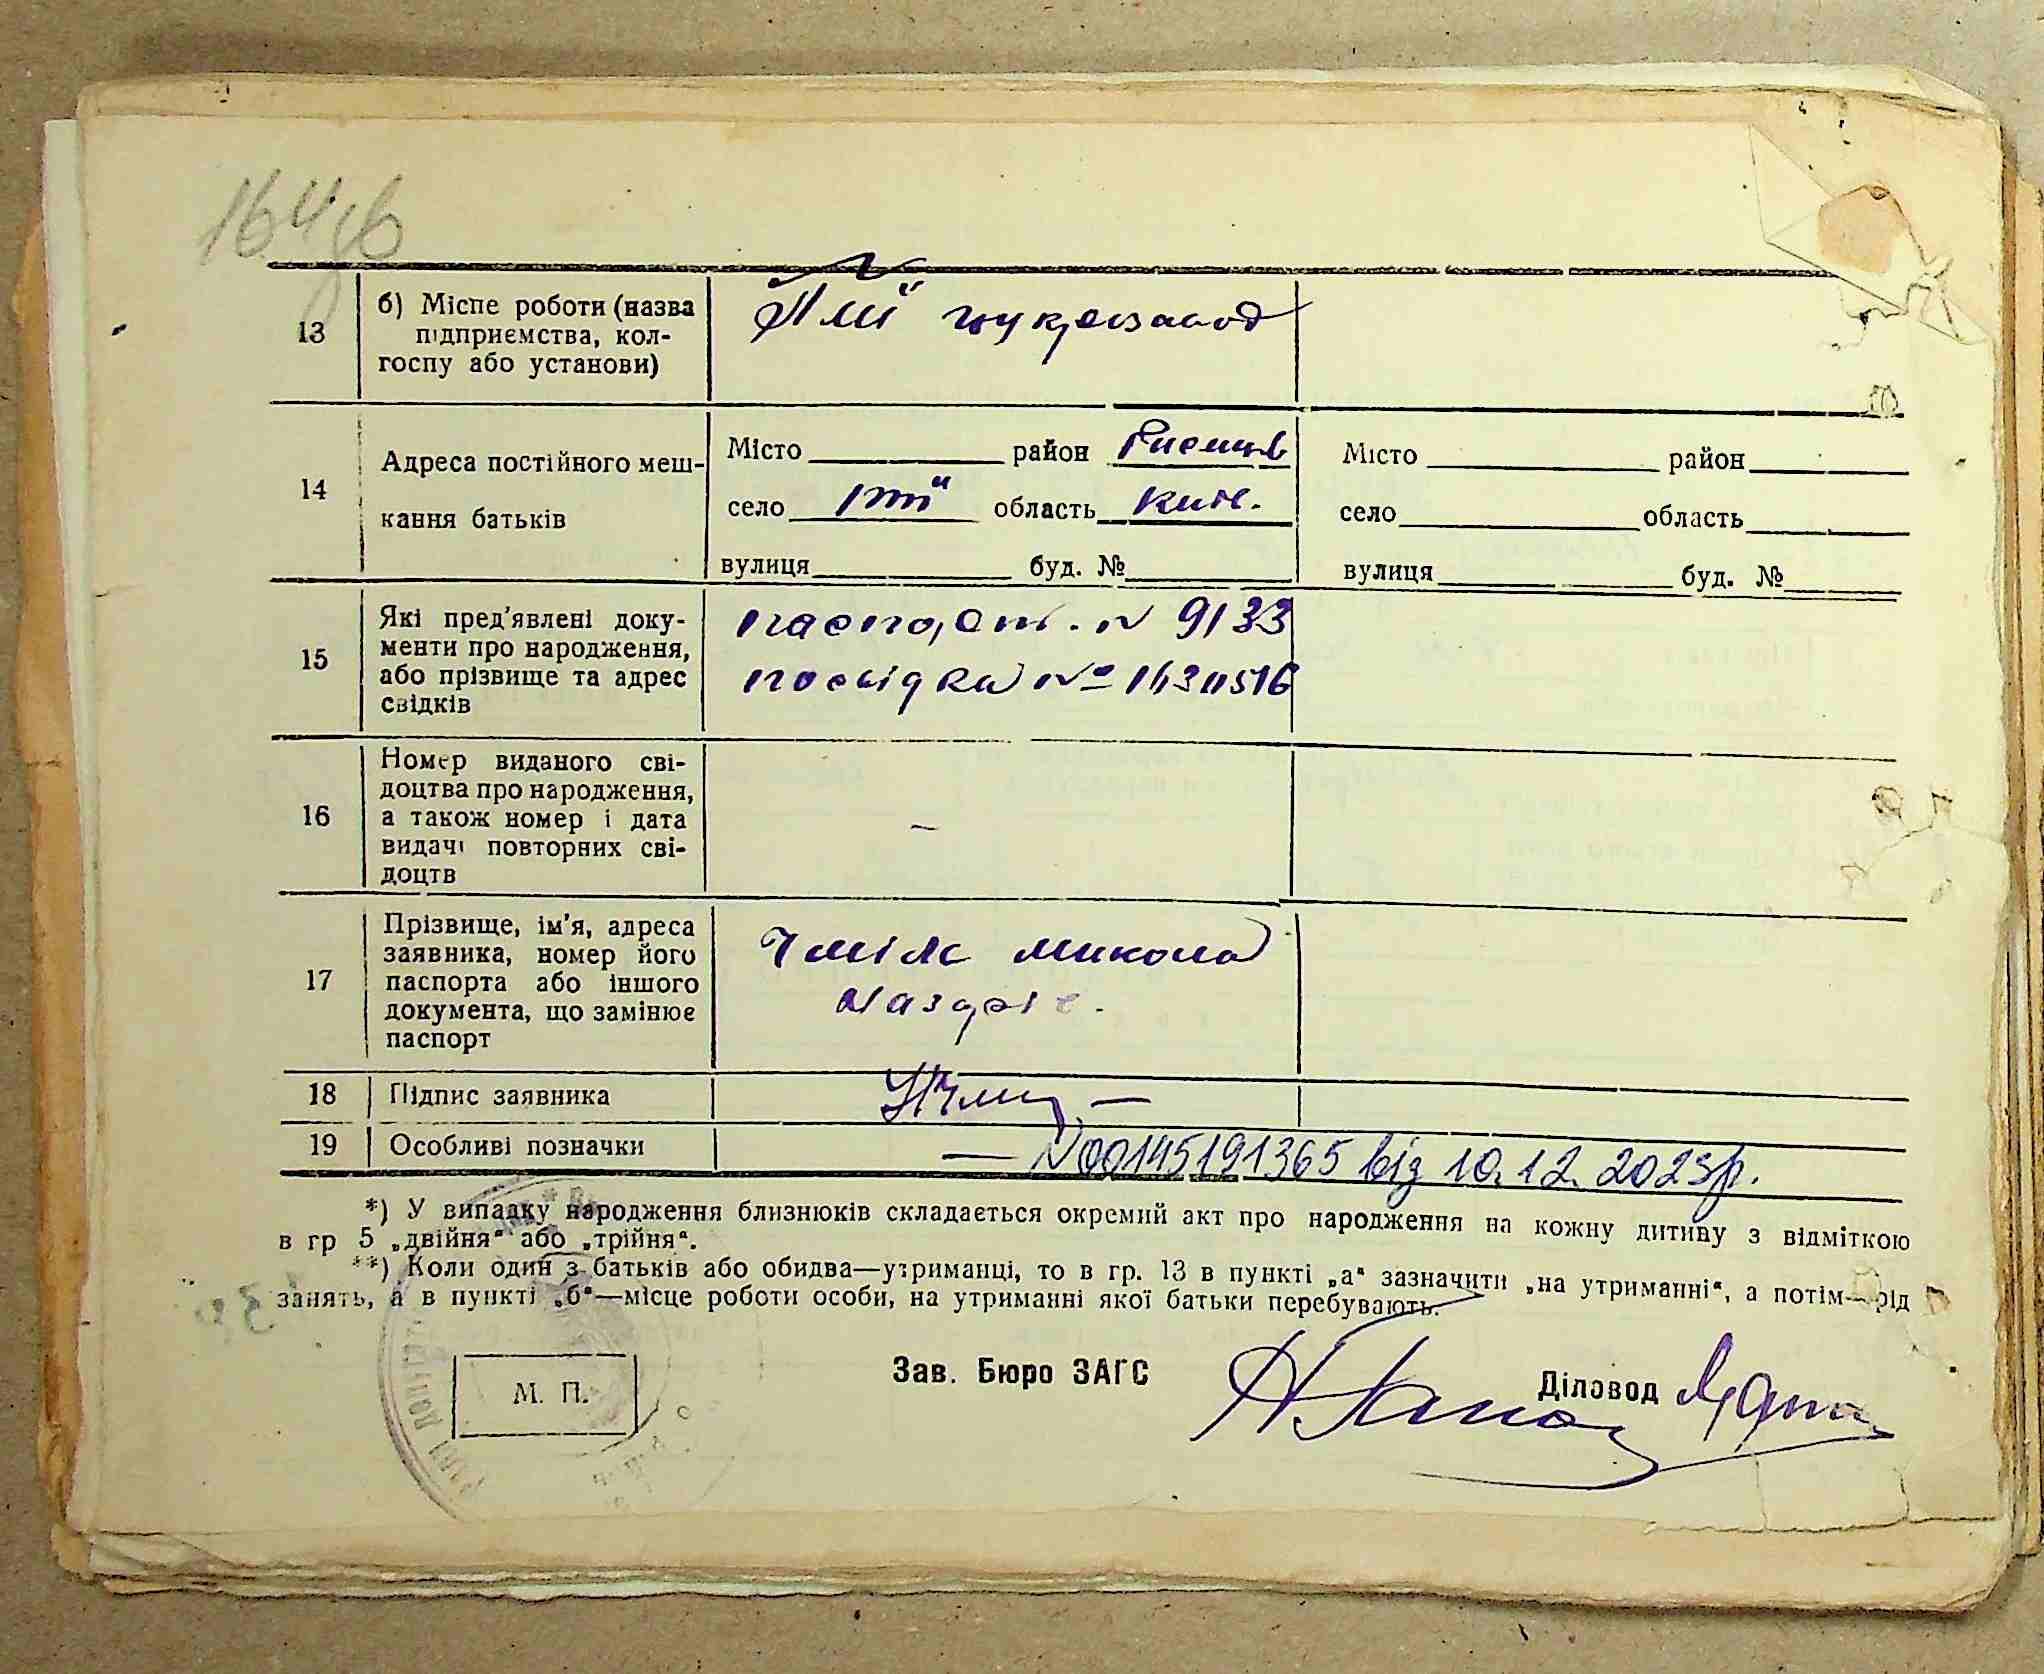 164 зв
13 б) Місце роботи (назва підприємства, колгоспу або установи) цукрозавод
14 Адреса постійного меш-
кання батьків
Місто район Місто район
село область Київ. село область
вулиця буд. № вулиця буд. №
15 Які пред'явлені доку-
менти про народження,
або прізвище та адрес
свідків
паспорт. N 9133
посвідка №
16 Номер виданого сві-
доцтва про народження,
а також номер і дата
видачі повторних сві-
доцтв
–
17 Прізвище, ім'я, адреса
заявника, номер його
паспорта або іншого
документа, що замінює
паспорт
Чміль Микола
18 Підпис заявника
19 Особливі позначки — N00145191365 від 10.12.2023р.
*) У випадку народження близнюків складається окремий акт про народження на кожну дитину з відміткою
в гр 5 „двійня“ або „трійня“.
**) Коли один з батьків або обидва—утриманці, то в гр. 13 в пункті „а“ зазначити „на утриманні“, а потім—рід
занять, а в пункті „б“—місце роботи особи, на утриманні якої батьки перебувають.
М. П.
Зав. Бюро ЗАГС
Діловод